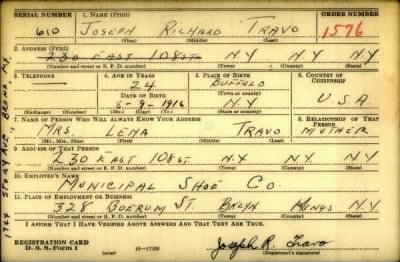 SERIAL NUMBER 1. NAME (Print) ORDER NUMBER
610 JOSEPH RICHARD TRAVO 1576
(First) (Middle) (Last)
2. ADDRESS (Print)
230 EAST 108ST. N.Y N.Y.
(Number and street or R. F. D. number) (Town) (County) (State)
3. TELEPHONE 4. AGE IN YEARS 5. PLACE OF BIRTH 6. COUNTRY OF CITIZENSHIP
24 BUFFALO
DATE OF BIRTH (Town or county)
5-9-1916 N.Y U.S.A
(Exchange) (Number) (Mo.) (Day) (Yr.) (State or country)
7. NAME OF PERSON WHO WILL ALWAYS KNOW YOUR ADDRESS 8. RELATIONSHIP OF THAT PERSON
MRS. LENA TRAVO MOTHER
(Mr., Mrs., Miss) (First) (Middle) (Last)
9. ADDRESS OF THAT PERSON
230 EAST 108ST. N.Y. N.Y. N.Y.
(Number and street or R. F. D. number) (Town) (County) (State)
10. EMPLOYER'S NAME
MUNICIPAL SHOE CO.
11. PLACE OF EMPLOYMENT OR BUSINESS
328 BOERUM ST. BKLYN KINGS N.Y
(Number and street or R. F. D. number) (Town) (County) (State)
I AFFIRM THAT I HAVE VERIFIED ABOVE ANSWERS AND THAT THEY ARE TRUE.
REGISTRATION CARD
D. S. S. Form 1 (over) 16-17105 Joseph R. Travo
STORY AVE., BRONX, N.Y.